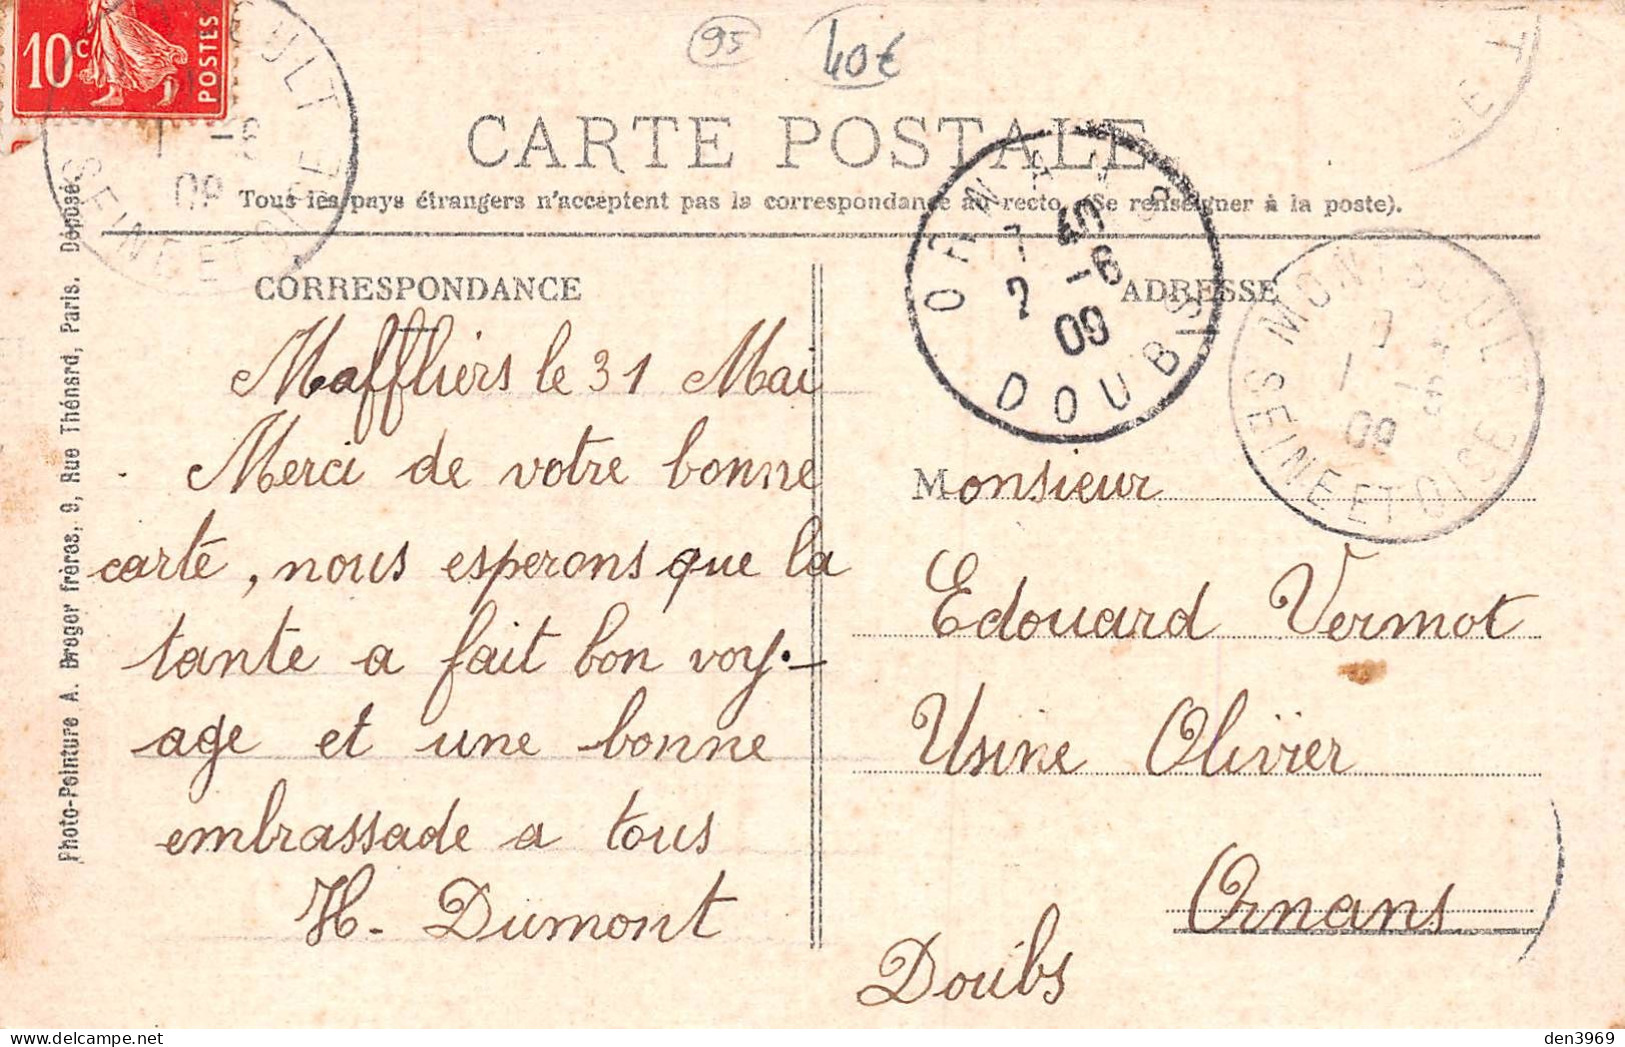 10c
POSTES
95
40€
CARTE POSTALE
Tous les pays étrangers n'acceptent pas la correspondance au recto (Se renseigner à la poste).
CORRESPONDANCE
ADRESSE
Maffliers le 31 Mai
Merci de votre bonne
carte, nous esperons que la
tante a fait bon voy.-
age et une bonne
embrassade a tous
H. Dumont
Monsieur
Edouard Vermot
Usine Olivier
Ornans
Doubs
ORNANS
7 40
2 -6
09
DOUBS
MONTSOULT
1 -6
09
SEINE ET OISE
1 -6
09
SEINE ET OISE
Photo-Peinture A. Breger frères, 9, Rue Thénard, Paris. Déposé.
den3969